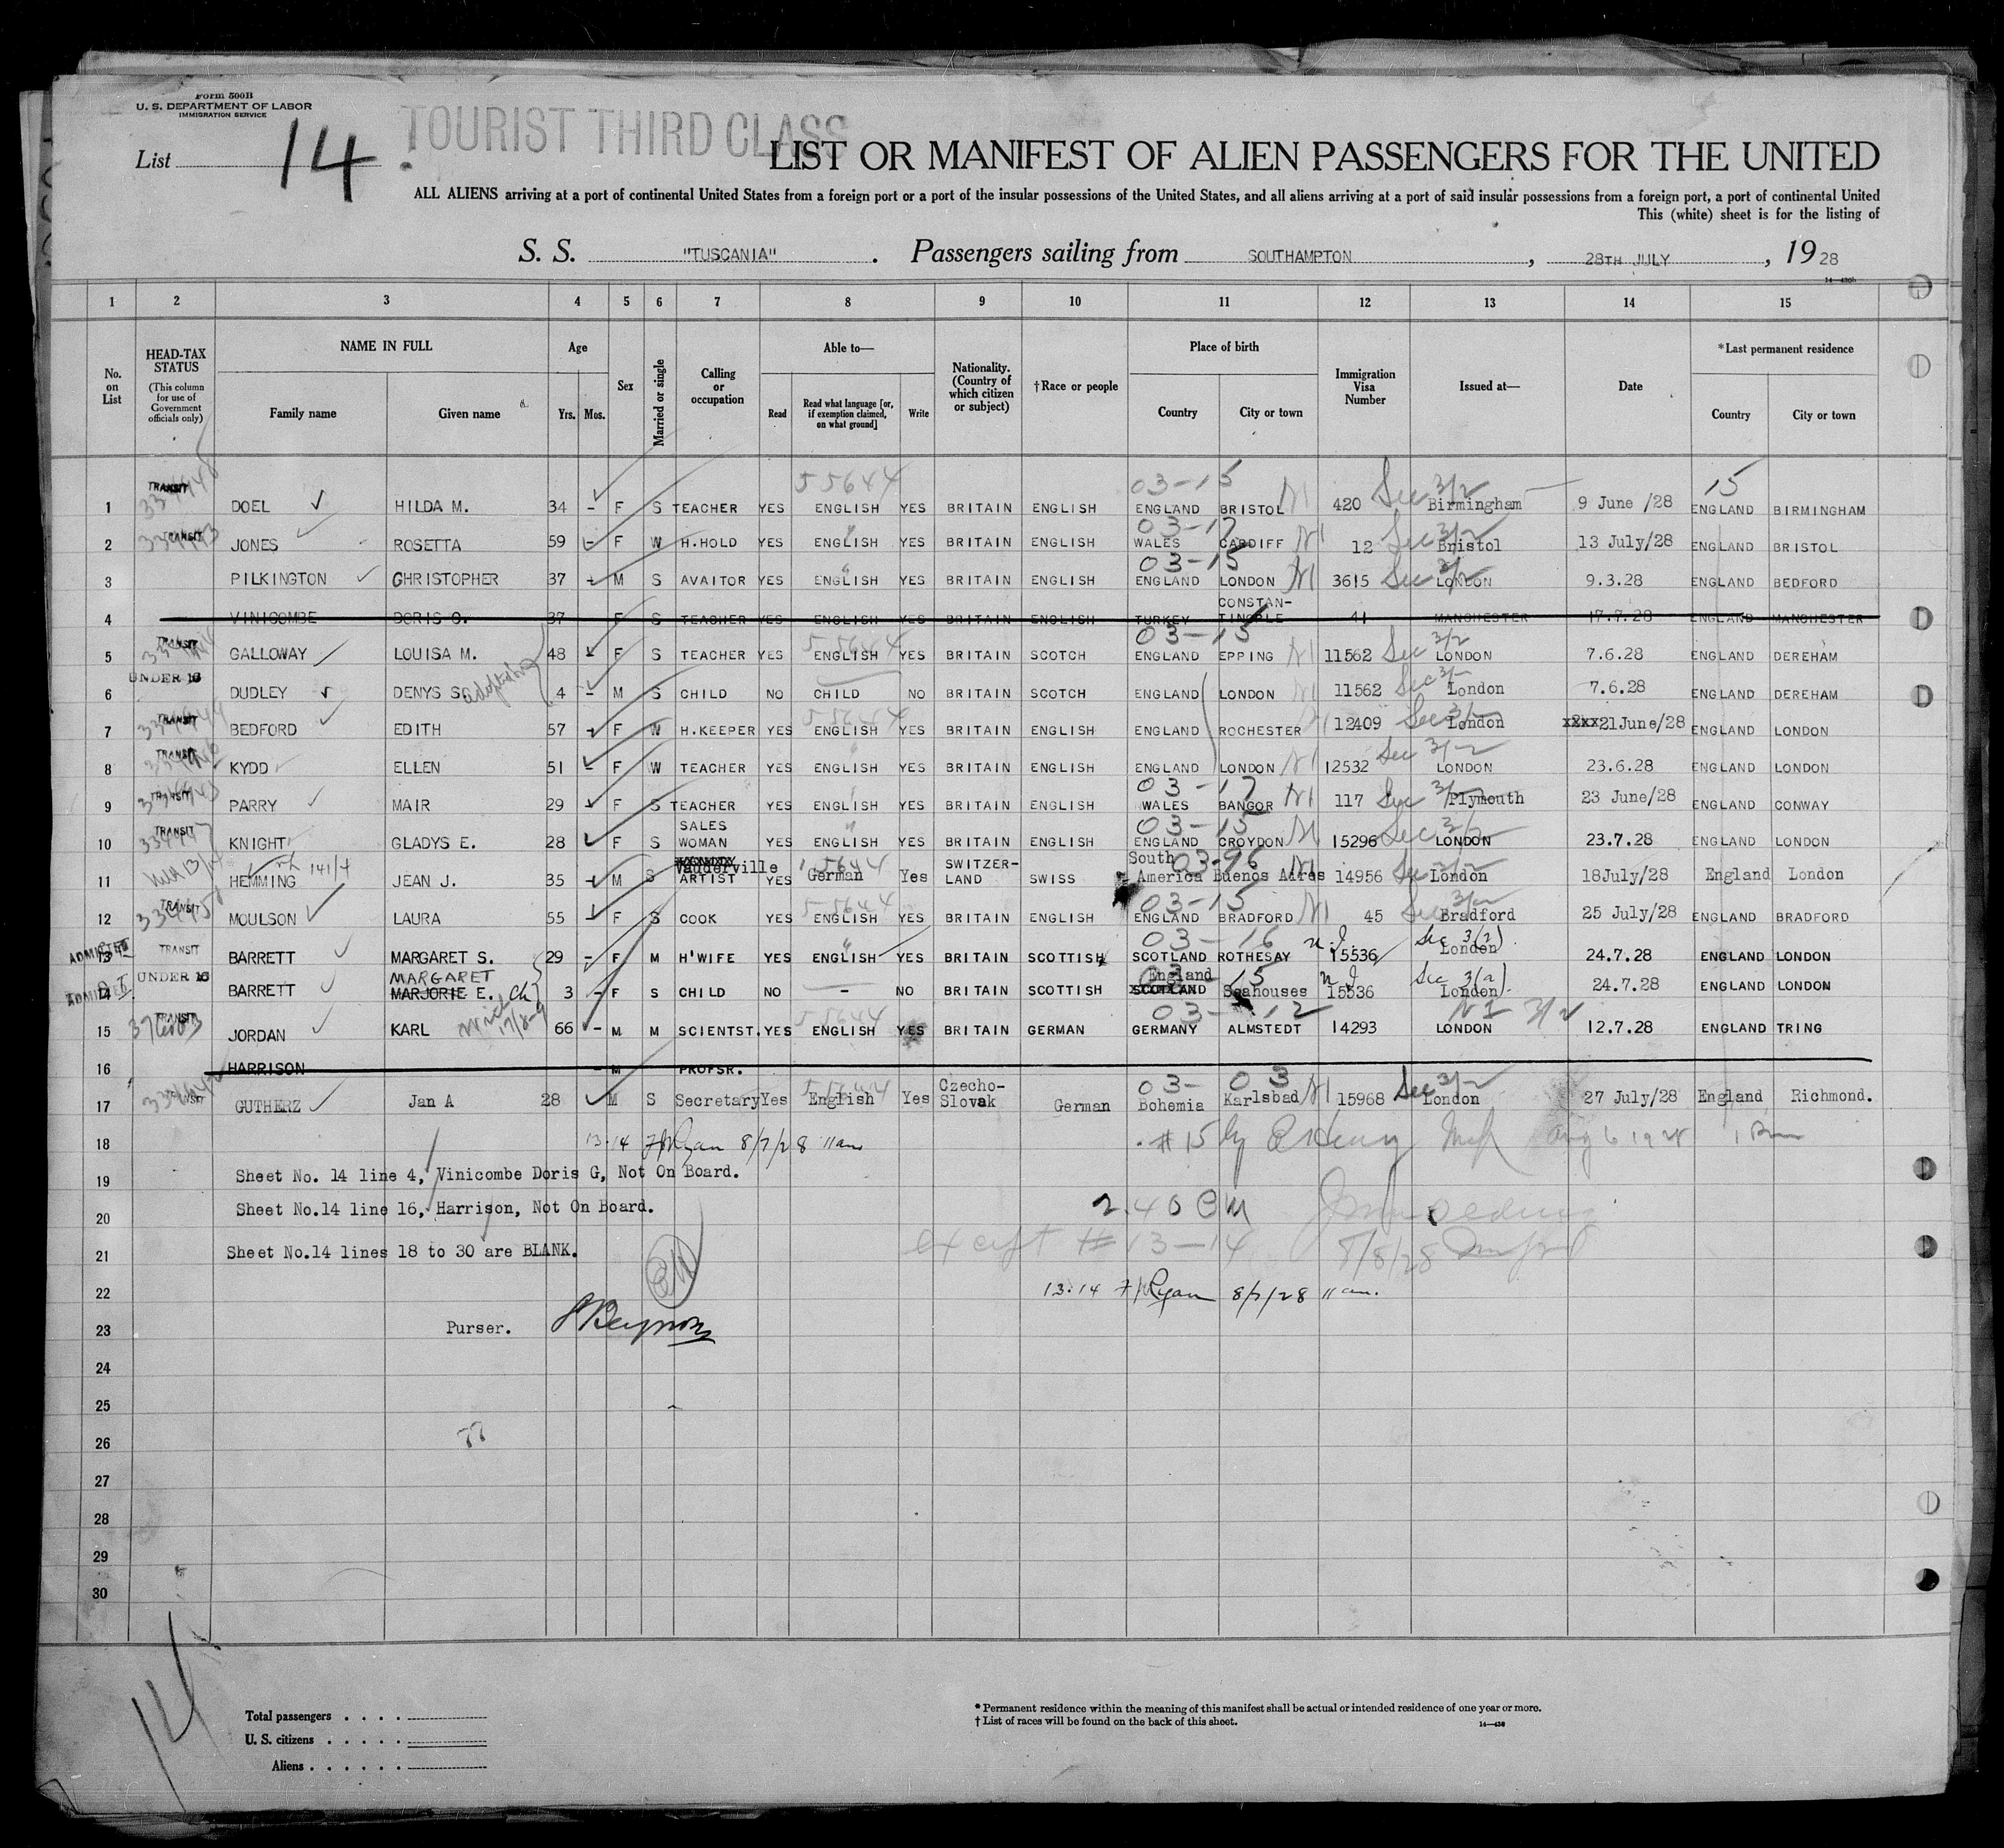 Form 500B
U. S. DEPARTMENT OF LABOR
IMMIGRATION SERVICE
TOURIST THIRD CLASS
List 14
LIST OR MANIFEST OF ALIEN PASSENGERS FOR THE UNITED
ALL ALIENS arriving at a port of continental United States from a foreign port or a port of the insular possessions of the United States, and all aliens arriving at a port of said insular possessions from a foreign port, a port of continental United
This (white) sheet is for the listing of
S. S. "TUSCANIA" . Passengers sailing from SOUTHAMPTON , 28TH JULY , 19 28
1 2 3 4 5 6 7 8 9 10 11 12 13 14 15
No. on List HEAD-TAX STATUS (This column for use of Government officials only) NAME IN FULL Family name Given name Age Yrs. Mos. Sex Married or single Calling or occupation Able to— Read Read what language [or, if exemption claimed, on what ground] Write Nationality. (Country of which citizen or subject) †Race or people Place of birth Country City or town Immigration Visa Number Issued at— Date *Last permanent residence Country City or town
TRANSIT 55644 03-15 15
1 DOEL HILDA M. 34 - F S TEACHER YES ENGLISH YES BRITAIN ENGLISH ENGLAND BRISTOL NI 420 Sec 3/2 Birmingham 9 June /28 ENGLAND BIRMINGHAM
TRANSIT 03-17
2 JONES ROSETTA 59 - F W H.HOLD YES ENGLISH YES BRITAIN ENGLISH WALES CARDIFF NI 12 Sec 3/2 Bristol 13 July/28 ENGLAND BRISTOL
03-15
3 PILKINGTON CHRISTOPHER 37 - M S AVAITOR YES ENGLISH YES BRITAIN ENGLISH ENGLAND LONDON NI 3615 Sec 3/2 LONDON 9.3.28 ENGLAND BEDFORD
4 VINICOMBE DORIS G. 37 F S TEACHER YES ENGLISH YES BRITAIN ENGLISH TURKEY CONSTAN-TINOPLE 41 MANCHESTER 17.7.28 ENGLAND MANCHESTER
TRANSIT 55644 03-15
5 GALLOWAY LOUISA M. 48 - F S TEACHER YES ENGLISH YES BRITAIN SCOTCH ENGLAND EPPING NI 11562 Sec 3/2 LONDON 7.6.28 ENGLAND DEREHAM
UNDER 16
6 DUDLEY DENYS S. 4 - M S CHILD NO CHILD NO BRITAIN SCOTCH ENGLAND LONDON NI 11562 Sec 3/2 London 7.6.28 ENGLAND DEREHAM
TRANSIT 55644
7 BEDFORD EDITH 57 - F W H.KEEPER YES ENGLISH YES BRITAIN ENGLISH ENGLAND ROCHESTER 12409 Sec 3/2 London xxxx21June/28 ENGLAND LONDON
TRANSIT
8 KYDD ELLEN 51 - F W TEACHER YES ENGLISH YES BRITAIN ENGLISH ENGLAND LONDON NI 12532 Sec 3/2 LONDON 23.6.28 ENGLAND LONDON
TRANSIT 03-17
9 PARRY MAIR 29 - F S TEACHER YES ENGLISH YES BRITAIN ENGLISH WALES BANGOR NI 117 Sec 3/2 Plymouth 23 June/28 ENGLAND CONWAY
TRANSIT 03-15
10 KNIGHT GLADYS E. 28 F S SALES WOMAN YES ENGLISH YES BRITAIN ENGLISH ENGLAND CROYDON NI 15296 Sec 3/2 LONDON 23.7.28 ENGLAND LONDON
141/4 55644 03-96
11 HEMMING JEAN J. 35 - M S Vauderville ARTIST YES German Yes SWITZER-LAND SWISS South America Buenos Adres NI 14956 Sec 3/2 London 18July/28 England London
TRANSIT 55644 03-15
12 MOULSON LAURA 55 - F S COOK YES ENGLISH YES BRITAIN ENGLISH ENGLAND BRADFORD NI 45 Sec 3/2 Bradford 25 July/28 ENGLAND BRADFORD
ADMITTED TRANSIT 03-16
13 BARRETT MARGARET S. 29 - F M H'WIFE YES ENGLISH YES BRITAIN SCOTTISH SCOTLAND ROTHESAY n.I. 15536 Sec 3(2). London 24.7.28 ENGLAND LONDON
ADMITTED UNDER 16 03 15
14 BARRETT MARGARET MARJORIE E. Ch 3 - F S CHILD NO - NO BRITAIN SCOTTISH England SCOTLAND Seahouses n.I. 15536 Sec 3(2). London 24.7.28 ENGLAND LONDON
TRANSIT 55644 03-12
15 JORDAN KARL 66 - M M SCIENTST. YES ENGLISH YES BRITAIN GERMAN GERMANY ALMSTEDT 14293 NI 3/2 LONDON 12.7.28 ENGLAND TRING
16 HARRISON - M PROFSR.
55644 03- 03
17 GUTHERZ Jan A 28 M S Secretary Yes English Yes Czecho-Slovak German Bohemia Karlsbad NI 15968 Sec 3/2 London 27 July/28 England Richmond.
18 13-14 Ryan 8/7/28 11am # 15 by Aug 6 1928
19 Sheet No. 14 line 4, Vinicombe Doris G, Not On Board.
20 Sheet No.14 line 16, Harrison, Not On Board. 2.40 PM
21 Sheet No.14 lines 18 to 30 are BLANK. except # 13-14 8/8/28
22 13-14 Ryan 8/7/28 11am.
23 Purser.
24
25
26 77
27
28
29
30
14
Total passengers
U. S. citizens
Aliens
* Permanent residence within the meaning of this manifest shall be actual or intended residence of one year or more.
† List of races will be found on the back of this sheet.
14—430